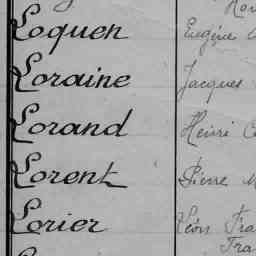 Loquen Eugène
Loraine Jacques
Lorand Henri
Lorent Pierre
Lorier Léon Fra
Fra